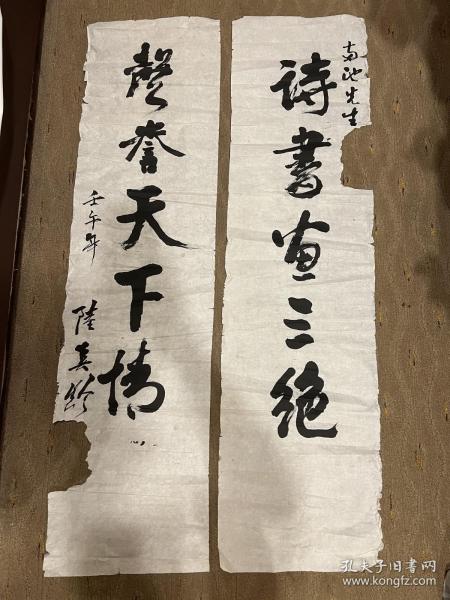 南池先生
詩書画三絶
聲誉天下情
壬午年
陸真玲
孔夫子旧书网
www.kongfz.com